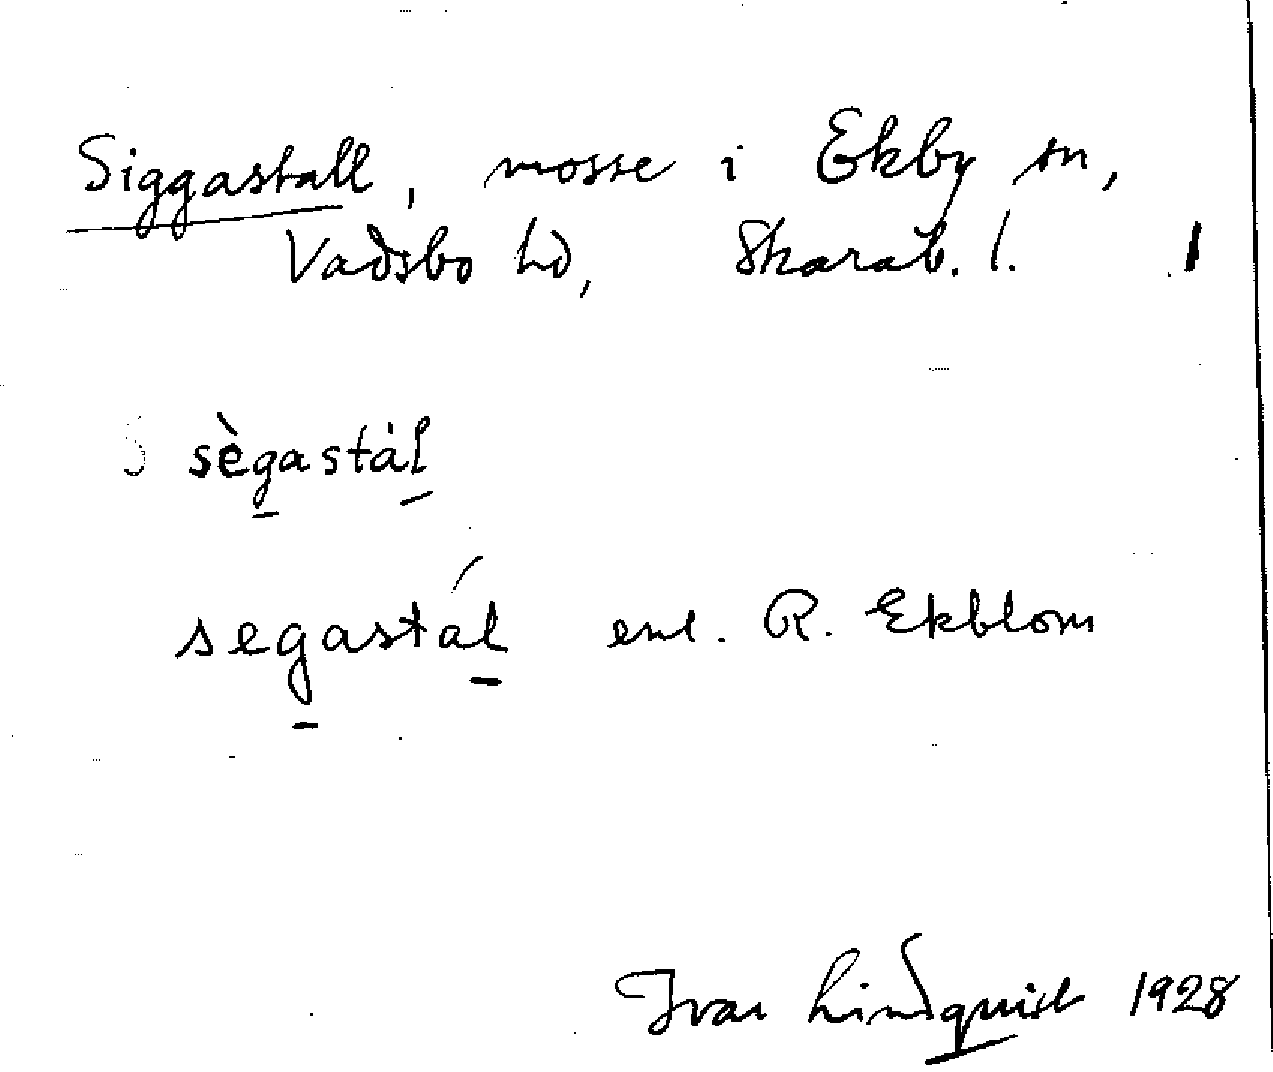 Siggastall, mosse i Ekby sn,
Vadsbo hd, Skarab. l.
sègastàl
segastál enl. R. Ekblom
Ivar Lindquist 1928